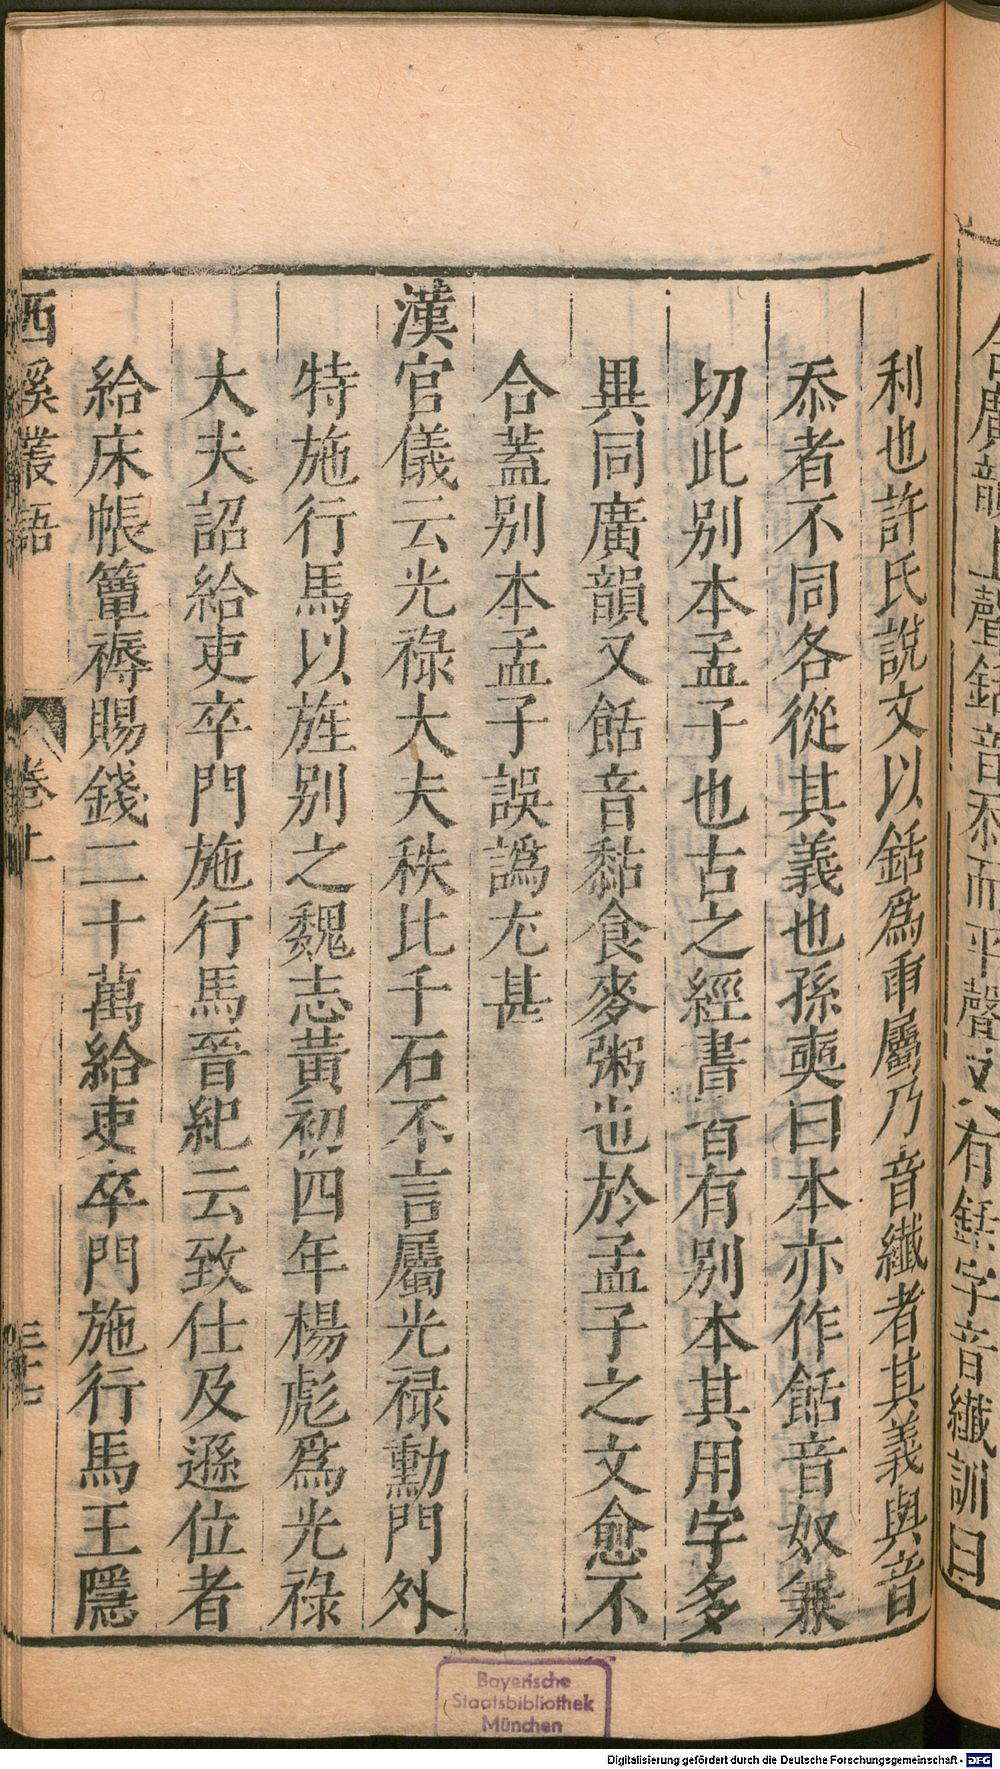 合廣韻上聲銛音忝而平聲又有銛字音纖訓曰
利也許氏說文以銛爲臿屬乃音纖者其義與音
忝者不同各從其義也孫奭曰本亦作餂音奴兼
切此别本孟子也古之經書皆有别本其用字多
異同廣韻又餂音黏食麥粥也於孟子之文愈不
合蓋别本孟子誤譌尢甚
漢官儀云光禄大夫秩比千石不言屬光禄勳門外
特施行馬以旌别之魏志黃初四年楊彪爲光禄
大夫詔給吏卒門施行馬晉紀云致仕及遜位者
給床帳簟褥賜錢二十萬給吏卒門施行馬王隱
西溪叢語 卷上 三十七
Bayerische
Staatsbibliothek
München
Digitalisierung gefördert durch die Deutsche Forschungsgemeinschaft - DFG